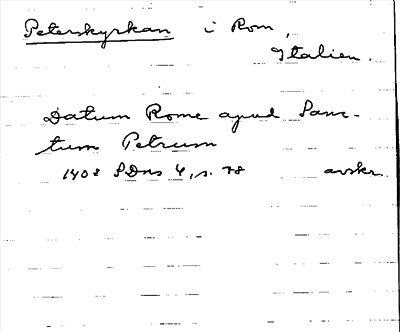 Peterskyrkan i Rom,
Italien.
Datum Rome apud Sanc-
tum Petrum
1403 SDns 4, s. 78 avskr.